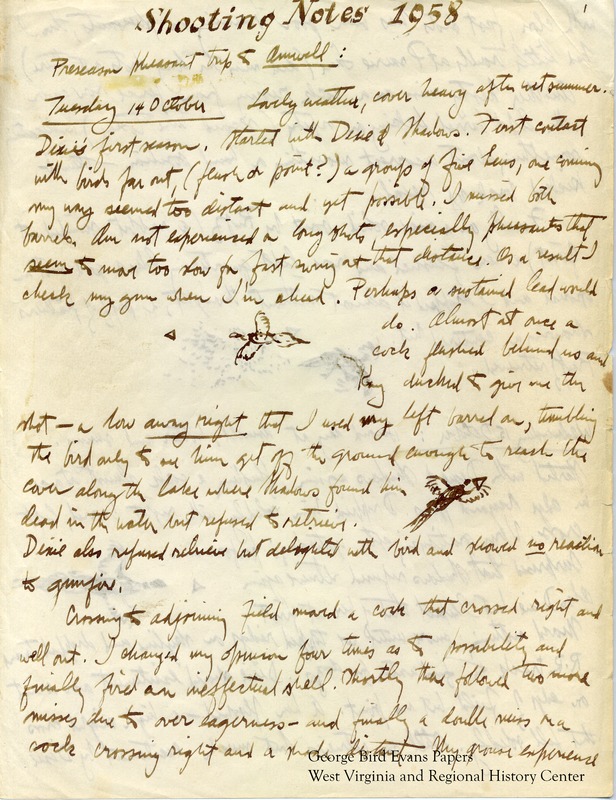 Shooting Notes 1958
1
Preseason pheasant trip to Amwell:
Tuesday 14 October Lovely weather, cover heavy after wet summer.
Dixie's first season. Started with Dixie & Shadows. First contact
with birds far out, (flush or point?) a group of five hens, one coming
my way seemed too distant and yet possible. I missed both
barrels. Am not experienced on long shots, especially pheasants that
seem to move too slow for fast swing at that distance. As a result I
check my gun when I'm ahead. Perhaps a sustained lead would
do. Almost at once a
cock flushed behind us and
Kay ducked to give me the
shot - a low away right that I used my left barrel on, tumbling
the bird only to see him get off the ground enough to reach the
cover along the lake where Shadows found him
dead in the water but refused to retrieve.
Dixie also refused retrieve but delighted with bird and showed no reaction
to gunfire.
Crossing to adjoining field moved a cock that crossed right and
well out. I changed my opinion four times as to possibility and
finally fired an ineffectual shell. Shortly there followed two more
misses due to over eagerness - and finally a double miss on a
cock crossing right and a shade distant. My grouse experience
George Bird Evans Papers
West Virginia and Regional History Center